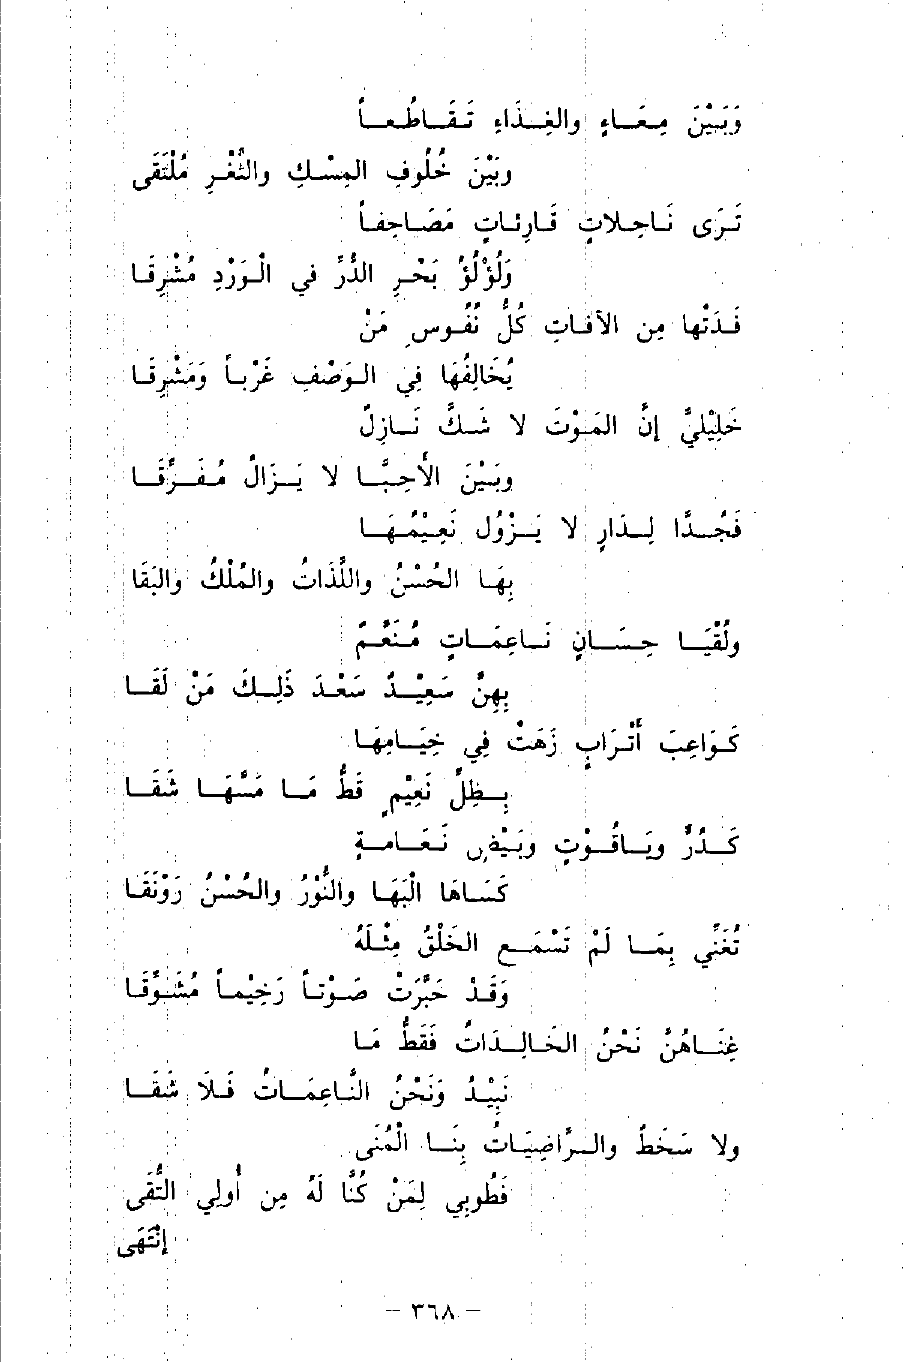 وَبَيْنَ مِعَاءٍ والغِذَاءِ تَقَاطُعاً
وبَيْنَ خُلُوفِ المِسْكِ والثُّغْرِ مُلْتَقَى
تَرَى نَاحِلاتٍ قَارِئاتٍ مَصَاحِفاً
وَلُؤْلُؤُ بَحْرِ الدُّرِّ في الْوَرْدِ مُشْرِقَا
فَدَتْها مِن الآفاتِ كُلُّ نُفُوسِ مَنْ
يُخَالِفُهَا فِي الوَصْفِ غَرْباً وَمَشْرِقَا
خَلِيْلَيَّ إنَّ المَوْتَ لا شَكَّ نَازِلٌ
وبَيْنَ الأَحِبَّا لا يَزَالُ مُفَرِّقَا
فَجُدَّا لِدَارٍ لا يَزُوْل نَعِيْمُهَا
بِهَا الحُسْنُ واللَّذَاتُ والمُلْكُ والبَقَا
ولُقْيَا حِسَانٍ نَاعِمَاتٍ مُنَعَّمٌ
بِهِنَّ سَعِيْدٌ سَعْدَ ذَلِكَ مَنْ لَقَا
كَوَاعِبَ أَتْرَابٍ زَهَتْ فِي خِيَامِهَا
بِظِلِّ نَعِيْمٍ قَطُّ مَا مَسَّهَا شَقَا
كَدُرٍّ ويَاقُوْتٍ وبَيْضِ نَعَامةٍ
كَسَاهَا الْبَهَا والنُّوْرُ والحُسْنُ رَوْنَقَا
تُغَنِّي بِمَا لَمْ تَسْمَعِ الخَلْقُ مِثْلَهُ
وَقَدْ حَبَّرَتْ صَوْتاً رَخِيْماً مُشَوِّقَا
غِنَاهُنَّ نَحْنُ الخَالِدَاتُ فَقَطُّ مَا
نَبِيْدُ وَنَحْنُ النَّاعِمَاتُ فَلَا شَقَا
ولا سَخَطٌ والرَّاضِيَاتُ بِنَا الْمُنَى
فَطُوبِي لِمَنْ كُنَّا لَهُ مِن أُولِي التُّقَى
إنْتَهَى
– ٣٦٨ –